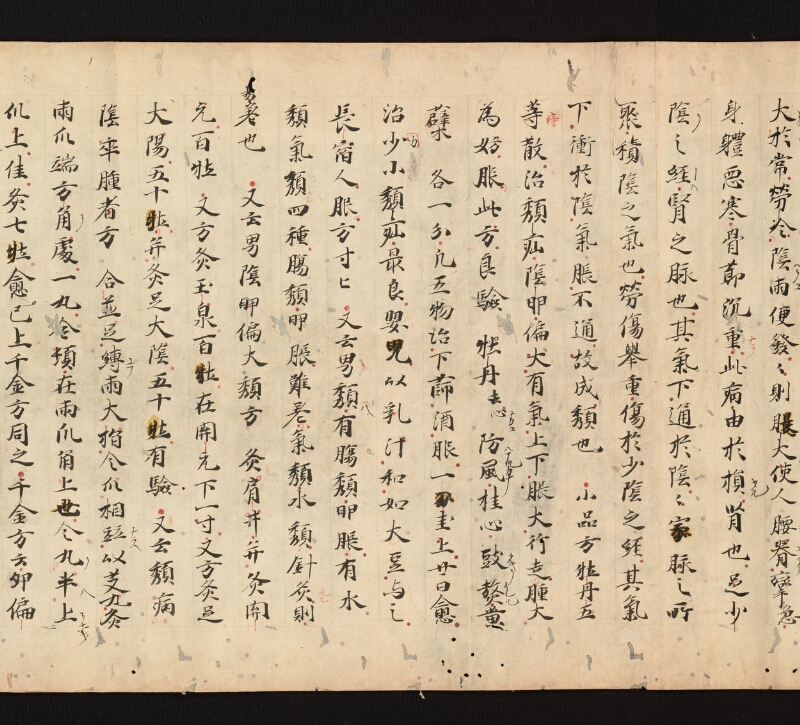 大於常勞冷陰雨便發〻則脹大使人腰脊攣急
身體惡寒骨節沉重此病由於損腎也足少
陰之經腎之脉也其氣下通於陰〻宗脉之所
聚積陰之氣也勞傷舉重傷於少陰之經其氣
下衝於陰氣脹不通故成㿗也 小品方牡丹五
等散治㿗疝陰卵偏大有氣上下脹大行走腫大
為妨脹此方良驗 牡丹去心 防風 桂心 豉熬 黃
蘗 各一分凡五物治下篩酒服一刀圭上廿日愈
治少小㿗疝最良嬰兒以乳汁和如大豆与之
長宿人服方寸匕 又云男㿗有腸㿗卵脹有水
㿗氣㿗四種腸㿗卵脹難差氣㿗水㿗針灸則
易著也 又云男陰卵偏大㿗方 灸肩井并灸關
元百壯 又方灸玉泉百壯在關元下一寸 又方灸足
大陽五十壯并灸足大陰五十壯有驗 又云㿗病
陰卒腫者方 合並足縛兩大指令爪相並以艾丸灸
兩爪端方角處一丸令頓在兩爪角上也令丸半上
爪上佳灸七壯愈已上千金方同之 千金方云卵偏